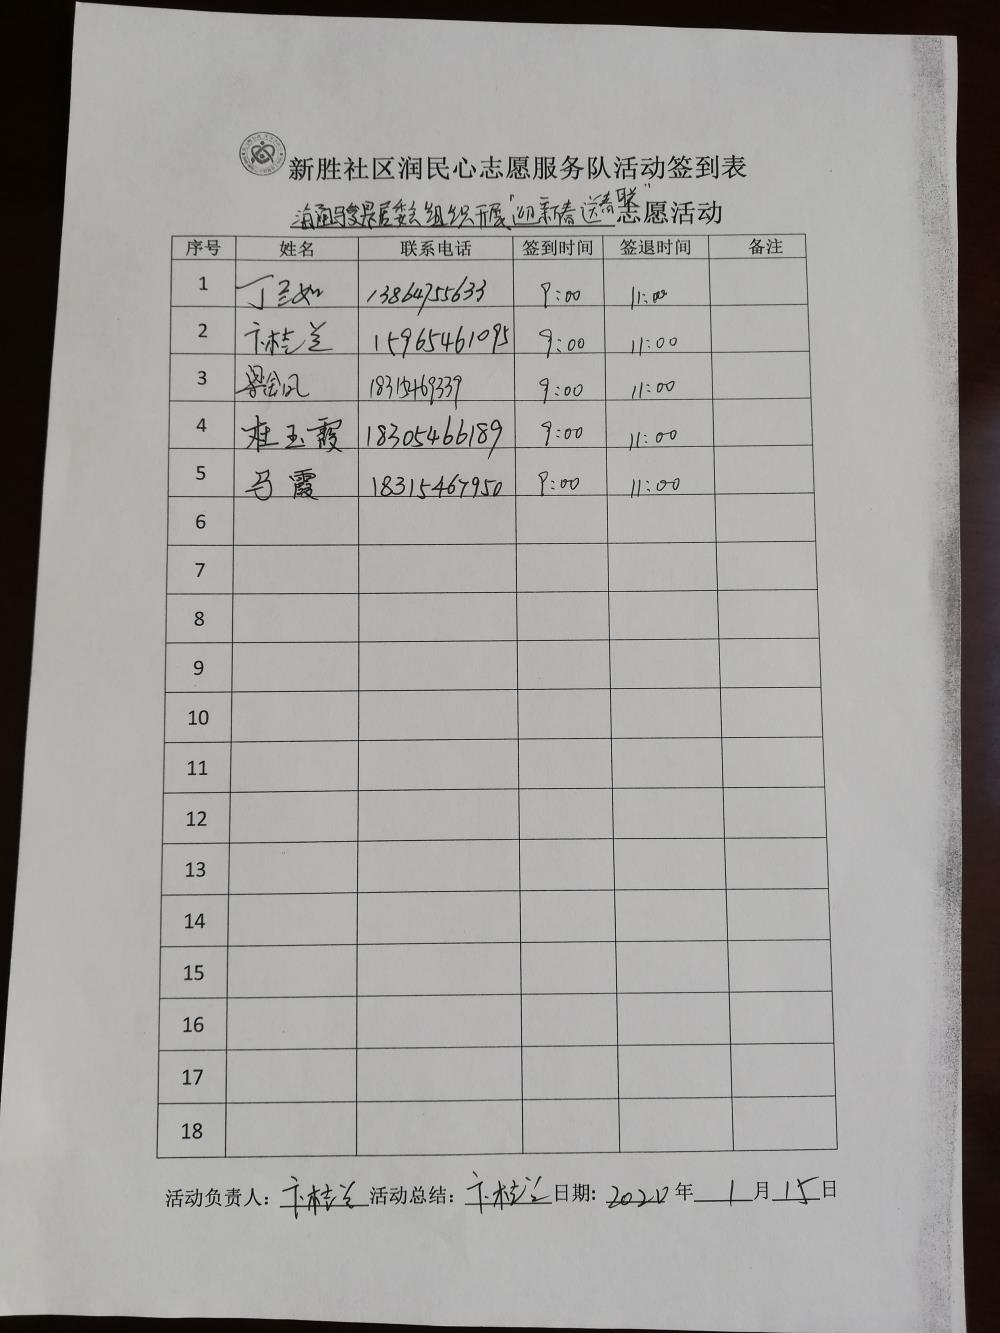 新胜社区润民心志愿服务队活动签到表
居委会组织开展"迎新春送春联"志愿活动
序号 姓名 联系电话 签到时间 签退时间 备注
1 丁兰如 13864755633 9:00 11:00
2 卞桂兰 15965461095 9:00 11:00
3 梁金凤 18315469339 9:00 11:00
4 桂玉霞 18305466189 9:00 11:00
5 马霞 18315467950 9:00 11:00
6
7
8
9
10
11
12
13
14
15
16
17
18
活动负责人：卞桂兰 活动总结：卞桂兰 日期：2020年 1 月 15 日